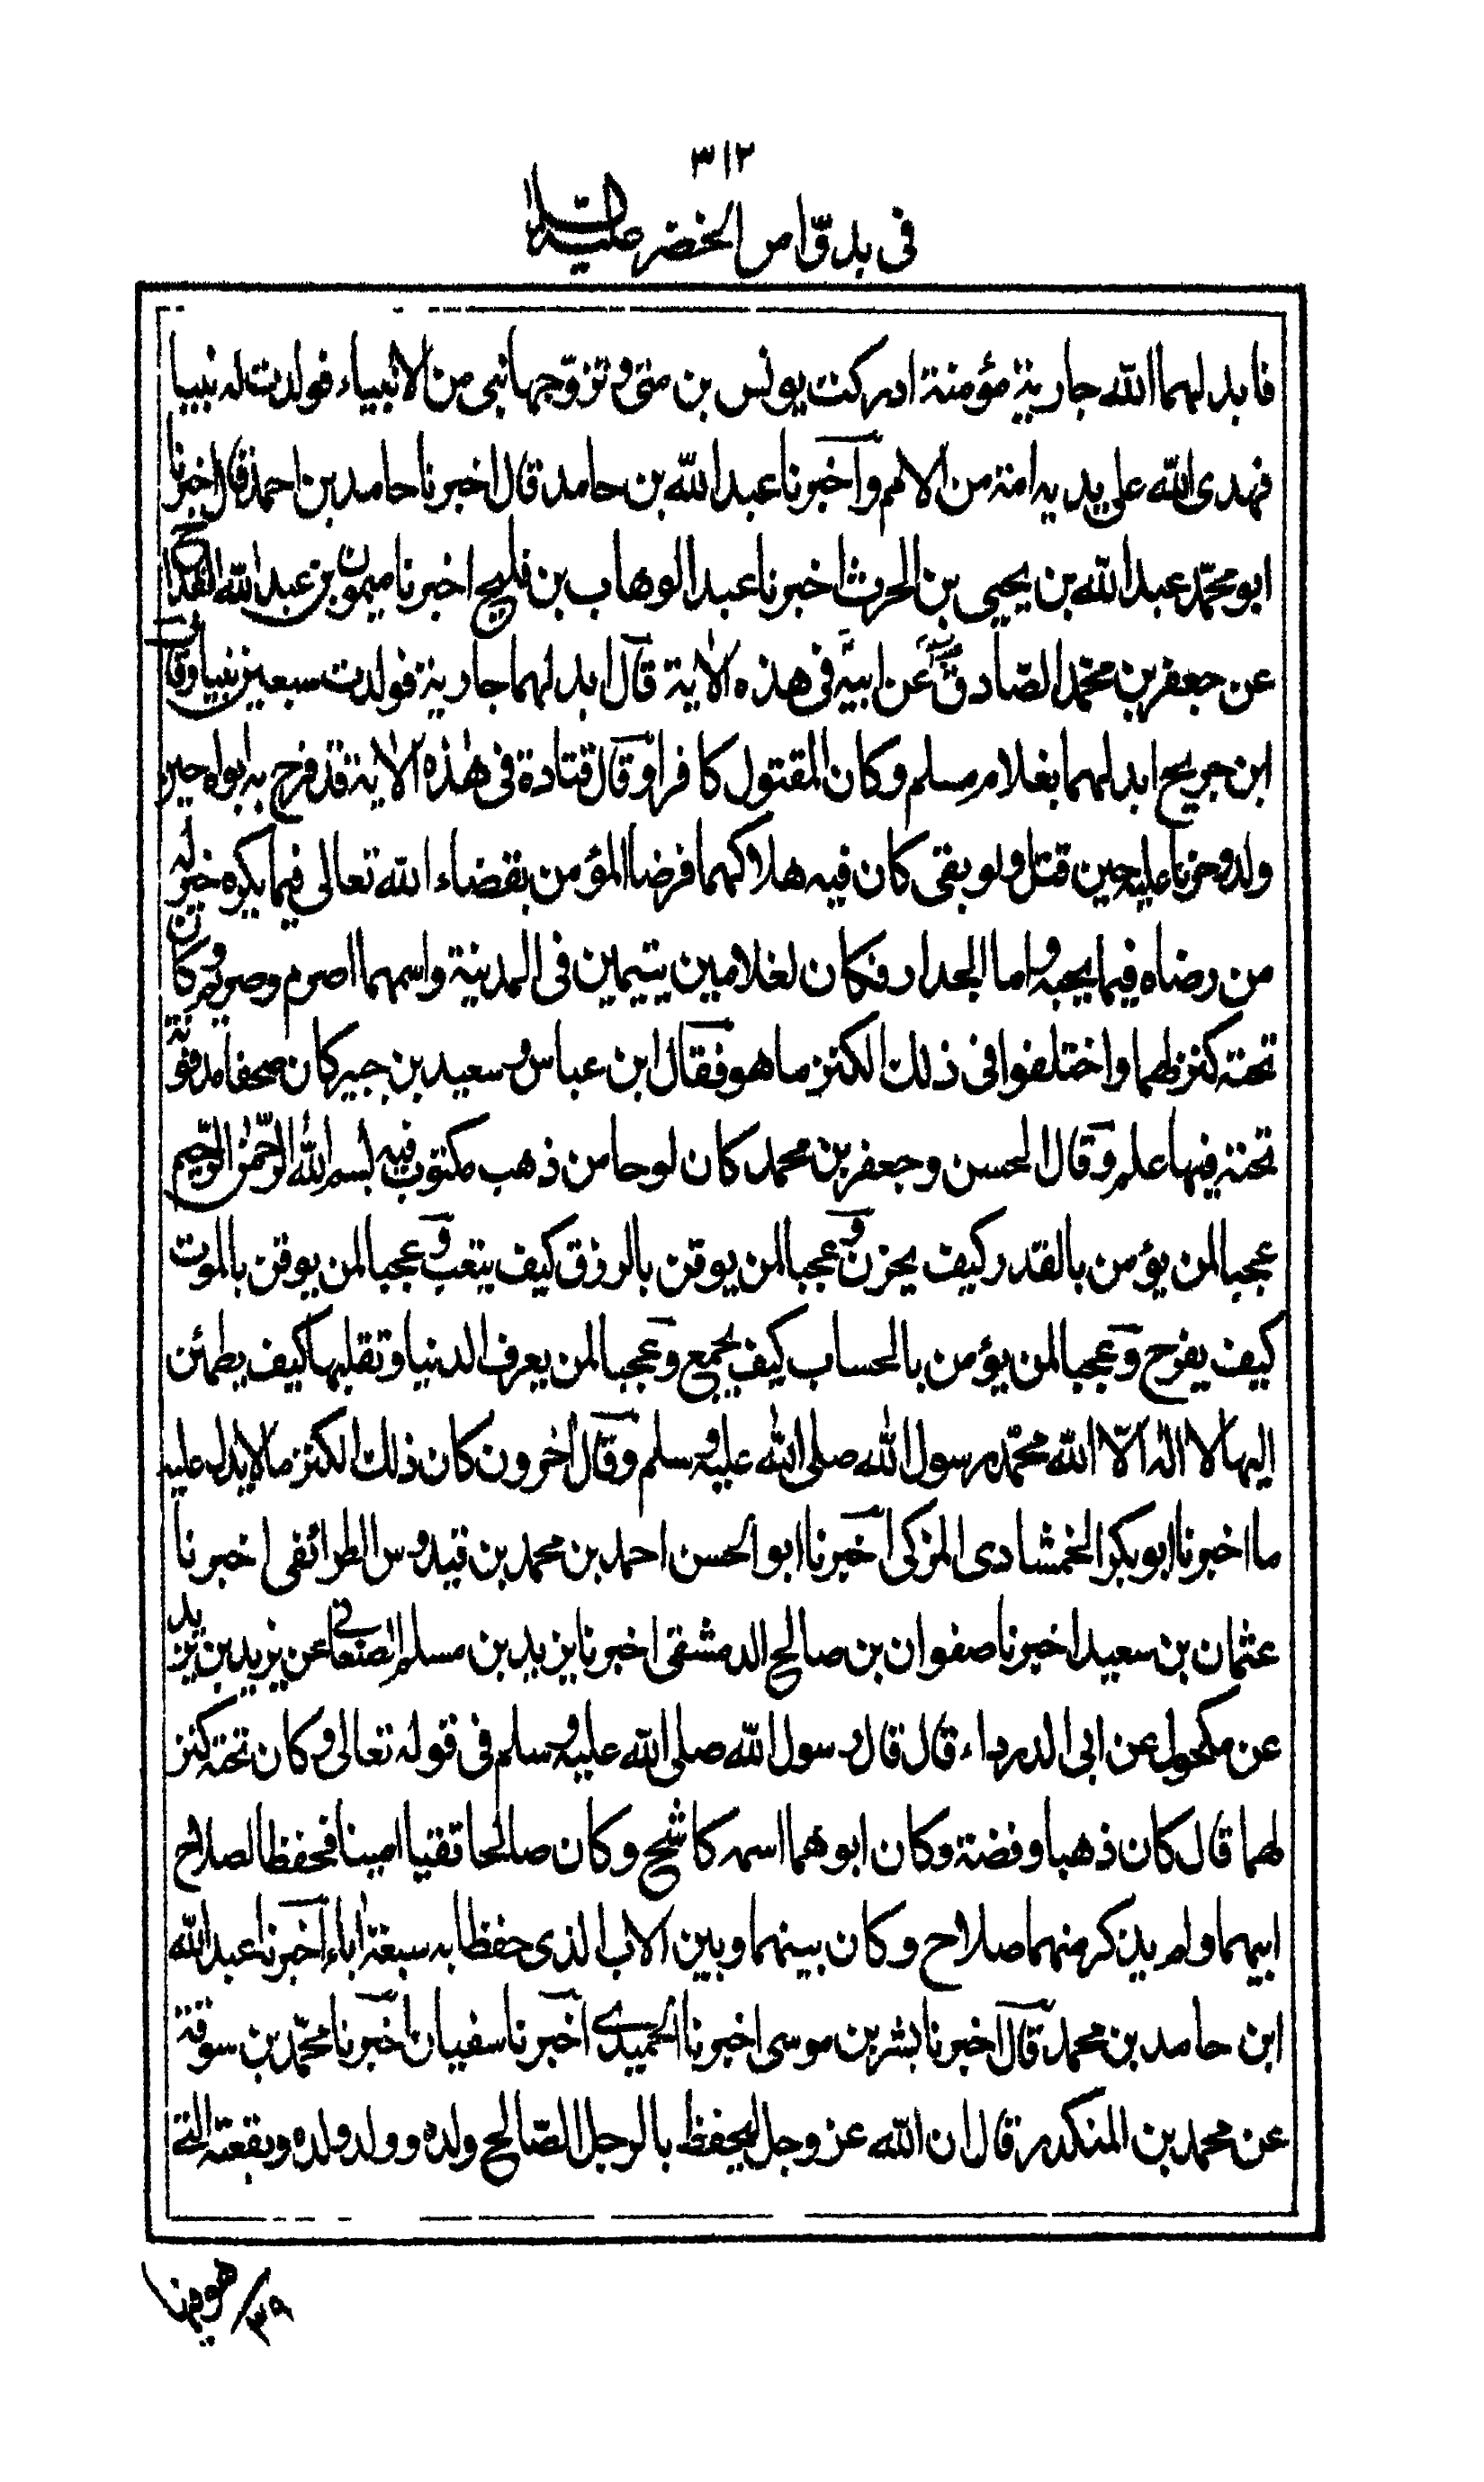 ٣١٢
في بدوّ امر الخضر عليه السلام
فابدلهما الله جارية مؤمنة ادركت يونس بن متى وتزوّجها نبي من الانبياء فولدت له نبييا
فهدى الله على يديه امة من الامم وأخبرنا عبد الله بن حامد قال اخبرنا حامد بن احمد قال اخبرنا
ابو محمّد عبد الله بن يحيى بن الحرث اخبرنا عبد الوهاب بن فليح اخبرنا ميمون بن عبد الله القداح
عن جعفر بن محمّد الصّادق عن ابيه في هذه الاية قال ابدلهما جارية فولدت سبعين نبيا وقال
ابن جريج ابدلهما بغلام مسلم وكان المقتول كافرا وقال قتادة في هذه الاية قد فرح به ابواه حين
ولد وحزنا عليه حين قتل ولو بقي كان فيه هلاكهما فرضا المؤمن بقضاء الله تعالى فيما يكره خير له
من رضاه فيما يحبه واما الجدار فكان لغلامين يتيمين في المدينة واسمهما اصرم وصريم وكان
تحته كنز لهما واختلفوا في ذلك الكنز ما هو فقال ابن عباس وسعيد بن جبير كان صحفا مدفونة
تحته فيها علم وقال الحسن وجعفر بن محمد كان لوحا من ذهب مكتوب فيه بسم الله الرّحمن الرّحيم
عجبا لمن يؤمن بالقدر كيف يحزن وعجبا لمن يوقن بالرزق كيف يتعب وعجبا لمن يوقن بالموت
كيف يفرح وعجبا لمن يؤمن بالحساب كيف يجمع وعجبا لمن يعرف الدنيا وتقلبها كيف يطمئن
اليها لا اله الّا الله محمّد رسول الله صلى الله عليه وسلم وقال اخرون كان ذلك الكنز مالا يدل عليه
ما اخبرنا ابو بكر الخمشادى المزكى اخبرنا ابو الحسن احمد بن محمد بن قيدوس الطرائفى اخبرنا
عثمان بن سعيد اخبرنا صفوان بن صالح الدمشقى اخبرنا يزيد بن مسلم الصنعاني عن يزيد بن يزيد
عن مكحول عن ابى الدرداء قال قال رسول الله صلى الله عليه وسلم في قوله تعالى وكان تحته كنز
لهما قال كان ذهبا وفضة وكان ابوهما اسمه كاشح وكان صالحا تقيا امينا فحفظا لصلاح
ابيهما ولم يذكر منهما صلاح وكان بينهما وبين الاب الذى حفظا به سبعة اباء اخبرنا عبد الله
ابن حامد بن محمد قال اخبرنا بشر بن موسى اخبرنا الحميدي اخبرنا سفيان اخبرنا محمّد بن سوقة
عن محمد بن المنكدر قال ان الله عز وجل ليحفظ بالرجل الصّالح ولده وولد ولده وبقعته التي
٣٩/